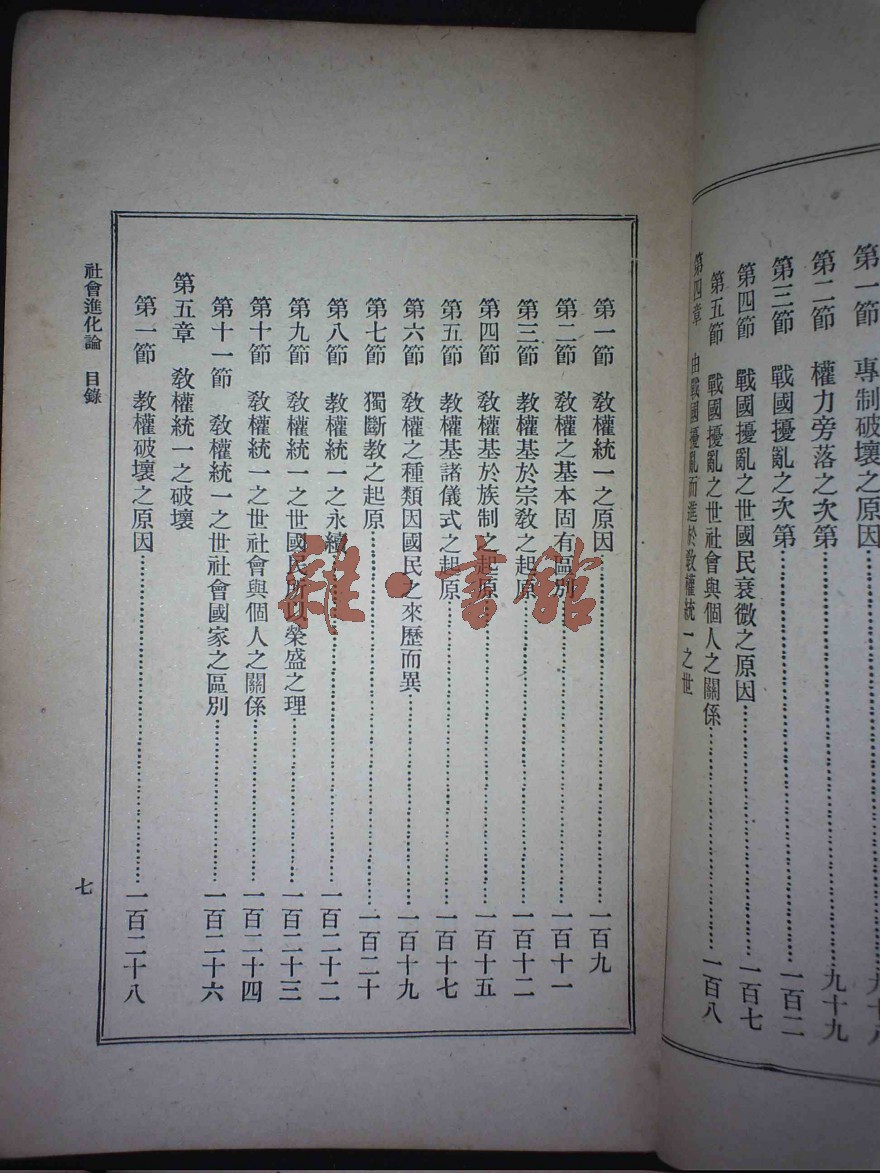 第一節　專制破壞之原因
第二節　權力旁落之次第……九十九
第三節　戰國擾亂之次第……一百二
第四節　戰國擾亂之世國民衰微之原因……一百七
第五節　戰國擾亂之世社會與個人之關係……一百八
第四章　由戰國擾亂而進於敎權統一之世
第一節　敎權統一之原因……一百九
第二節　敎權之基本固有區別……一百十一
第三節　敎權基於宗敎之起原……一百十二
第四節　敎權基於族制之起原……一百十五
第五節　敎權基諸儀式之起原……一百十七
第六節　敎權之種類因國民之來歷而異……一百十九
第七節　獨斷敎之起原……一百二十
第八節　敎權統一之永續……一百二十二
第九節　敎權統一之世國民所以榮盛之理……一百二十三
第十節　敎權統一之世社會與個人之關係……一百二十四
第十一節　敎權統一之世社會國家之區別……一百二十六
第五章　敎權統一之破壞
第一節　敎權破壞之原因……一百二十八
社會進化論　目錄
七
雜·書館